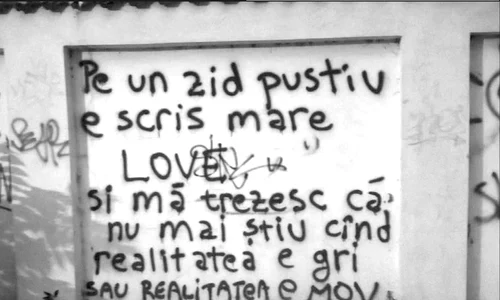 Pe un zid pustiv
e scris mare
LOVE
si mă trezesc că
nu mai știu cînd
realitatea e gri
SAU REALITATEA e MOV